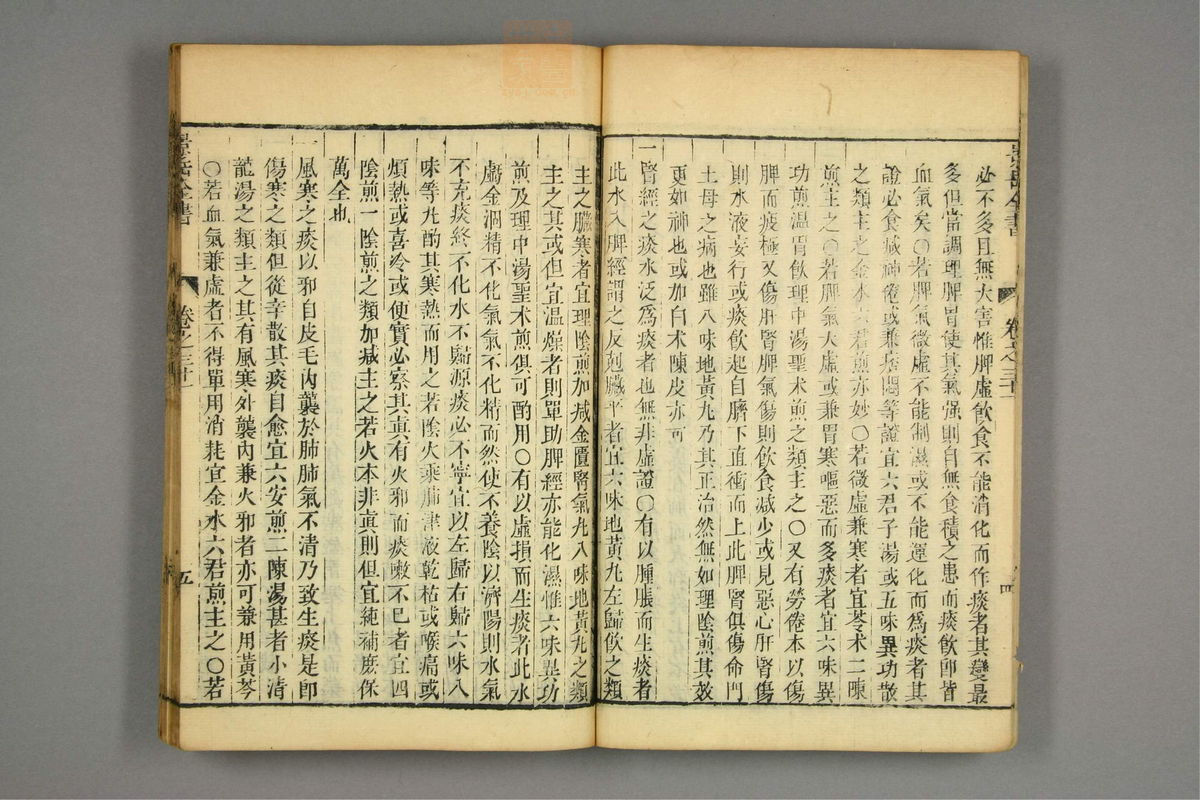 必不多且無大害惟脾虛飲食不能消化而作痰者其變最
多但當調理脾胃使其氣强則自無食積之患而痰飲卽皆
血氣矣○若脾氣微虛不能制濕或不能運化而為痰者其
證必食減神倦或兼痞悶等證宜六君子湯或五味異功散
之類主之金水六君煎亦妙○若微虛兼寒者宜苓术二陳
煎主之○若脾氣大虛或兼胃寒嘔惡而多痰者宜六味異
功煎温胃飲理中湯聖术煎之類主之○又有勞倦本以傷
脾而疲極又傷肝腎脾氣傷則飲食減少或見惡心肝腎傷
則水液妄行或痰飲起自臍下直衝而上此脾腎俱傷命門
土母之病也雖八味地黃丸乃其正治然無如理陰煎其效
更如神也或加白术陳皮亦可
一腎經之痰水泛為痰者也無非虛證○有以腫脹而生痰者
此水入脾經謂之反剋臟平者宜六味地黃丸左歸飲之類
主之臟寒者宜理陰煎加減金匱腎氣丸八味地黃丸之類
主之其或但宜温燥者則單助脾經亦能化濕惟六味異功
煎及理中湯聖术煎俱可酌用○有以虛損而生痰者此水
虧金涸精不化氣氣不化精而然使不養陰以濟陽則水氣
不充痰終不化水不歸源痰必不寧宜以左歸右歸六味八
味等丸酌其寒熱而用之若陰火乘肺津液乾枯或喉痛或
煩熱或喜冷或便實必察其真有火邪而痰嗽不已者宜四
陰煎一陰煎之類加減主之若火本非真則但宜純補庶保
萬全也
一風寒之痰以邪自皮毛內襲於肺肺氣不清乃致生痰是卽
傷寒之類但從辛散其痰自愈宜六安煎二陳湯甚者小清
龍湯之類主之其有風寒外襲內兼火邪者亦可兼用黃芩
○若血氣兼虛者不得單用消耗宜金水六君煎主之○若
景岳全書
卷之三十一
四
景岳全書
卷之三十一
五